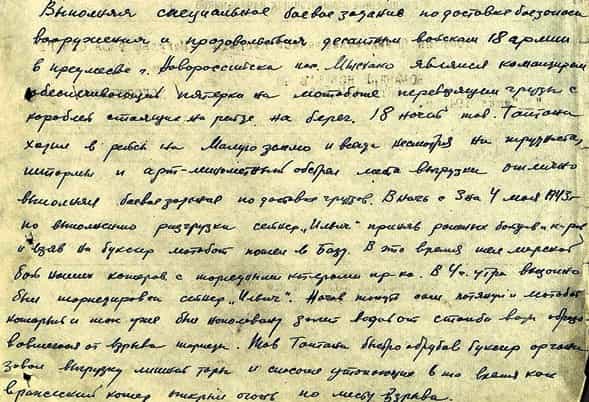 Выполняя специальное боевое задание по доставке боезапаса
вооружения и продовольствия десантным войскам 18 армии
в предместье г. Новороссийска пос. Мысхако являлся командиром
обеспечивающим пятерки на мотоботе перевозящим грузы с
кораблей стоящие на рейде на берег. 18 ночей тов. Таптана
ходил в рейсы на Малую землю и всегда несмотря на трудности,
штормы и арт-минометный обстрел места выгрузки отлично
выполнял боевое задание по доставке грузов. В ночь с 3 на 4 мая 1943г
по выполнению разгрузки сейнер „Ильич" приняв раненых бойцов и
и взяв на буксир мотобот пошел в Базу. В это время шел морской
бой наших катеров с торпедными катерами пр-ка. В 4ч. утра
был торпедирован сейнер „Ильич". Начав тонуть сам, потянул и мотобот
который и так уже был наполовину залит водой от столба воды
от взрыва торпеды. Тов Таптана быстро обрубив буксир
выгрузку лишней тары и спасение утопающих в то время как
вражеский катер открыл огонь по месту взрыва.